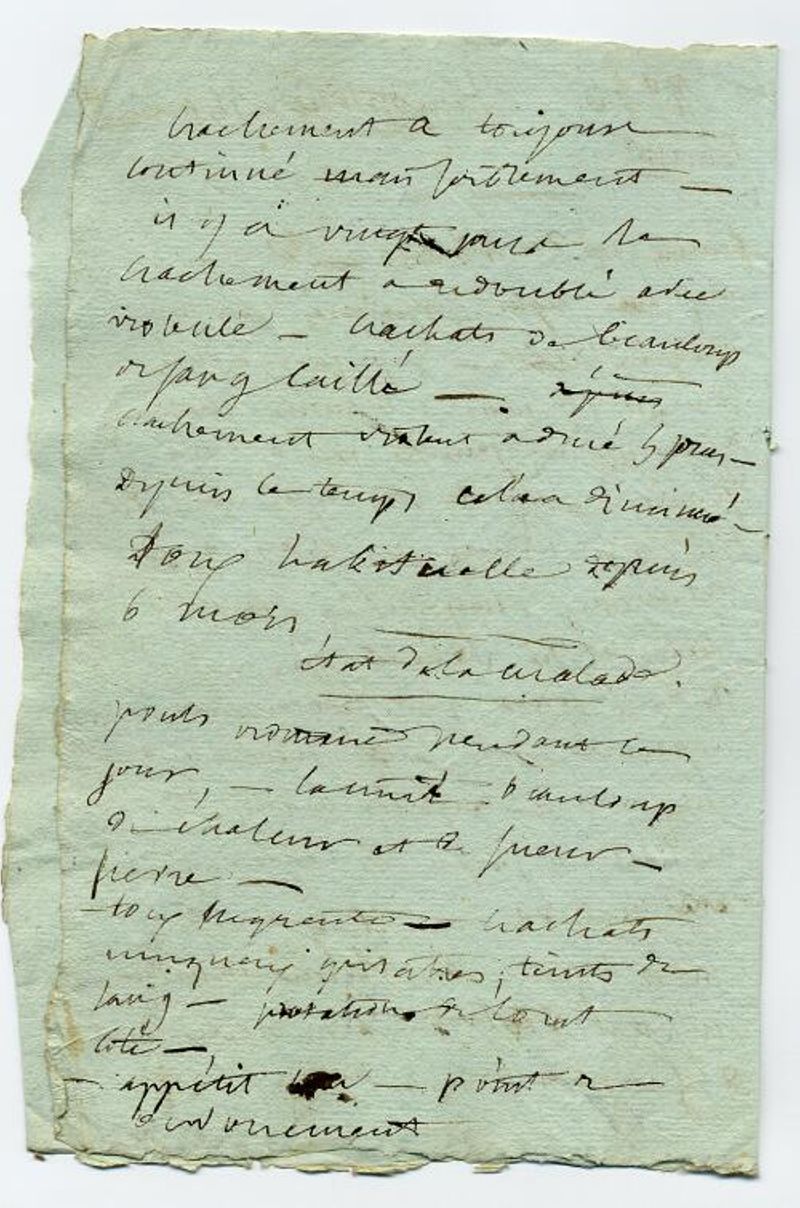 crachement a toujours
continué mais faiblement —
il y a vingt jours le
crachement a redoublé avec
violence — crachats de beaucoup
de sang caillé — depuis
crachement violent a duré 5 jours —
Depuis ce temps cela a diminué —
Toux habituelle depuis
6 mois
état de la malade.
pouls pendant le
jour, — la nuit beaucoup
de chaleur et de sueur —
fievre —
— toux frequente — crachats
muqueux grisatres, teints de
sang —
coté —
— appétit bon — point de
devoiement